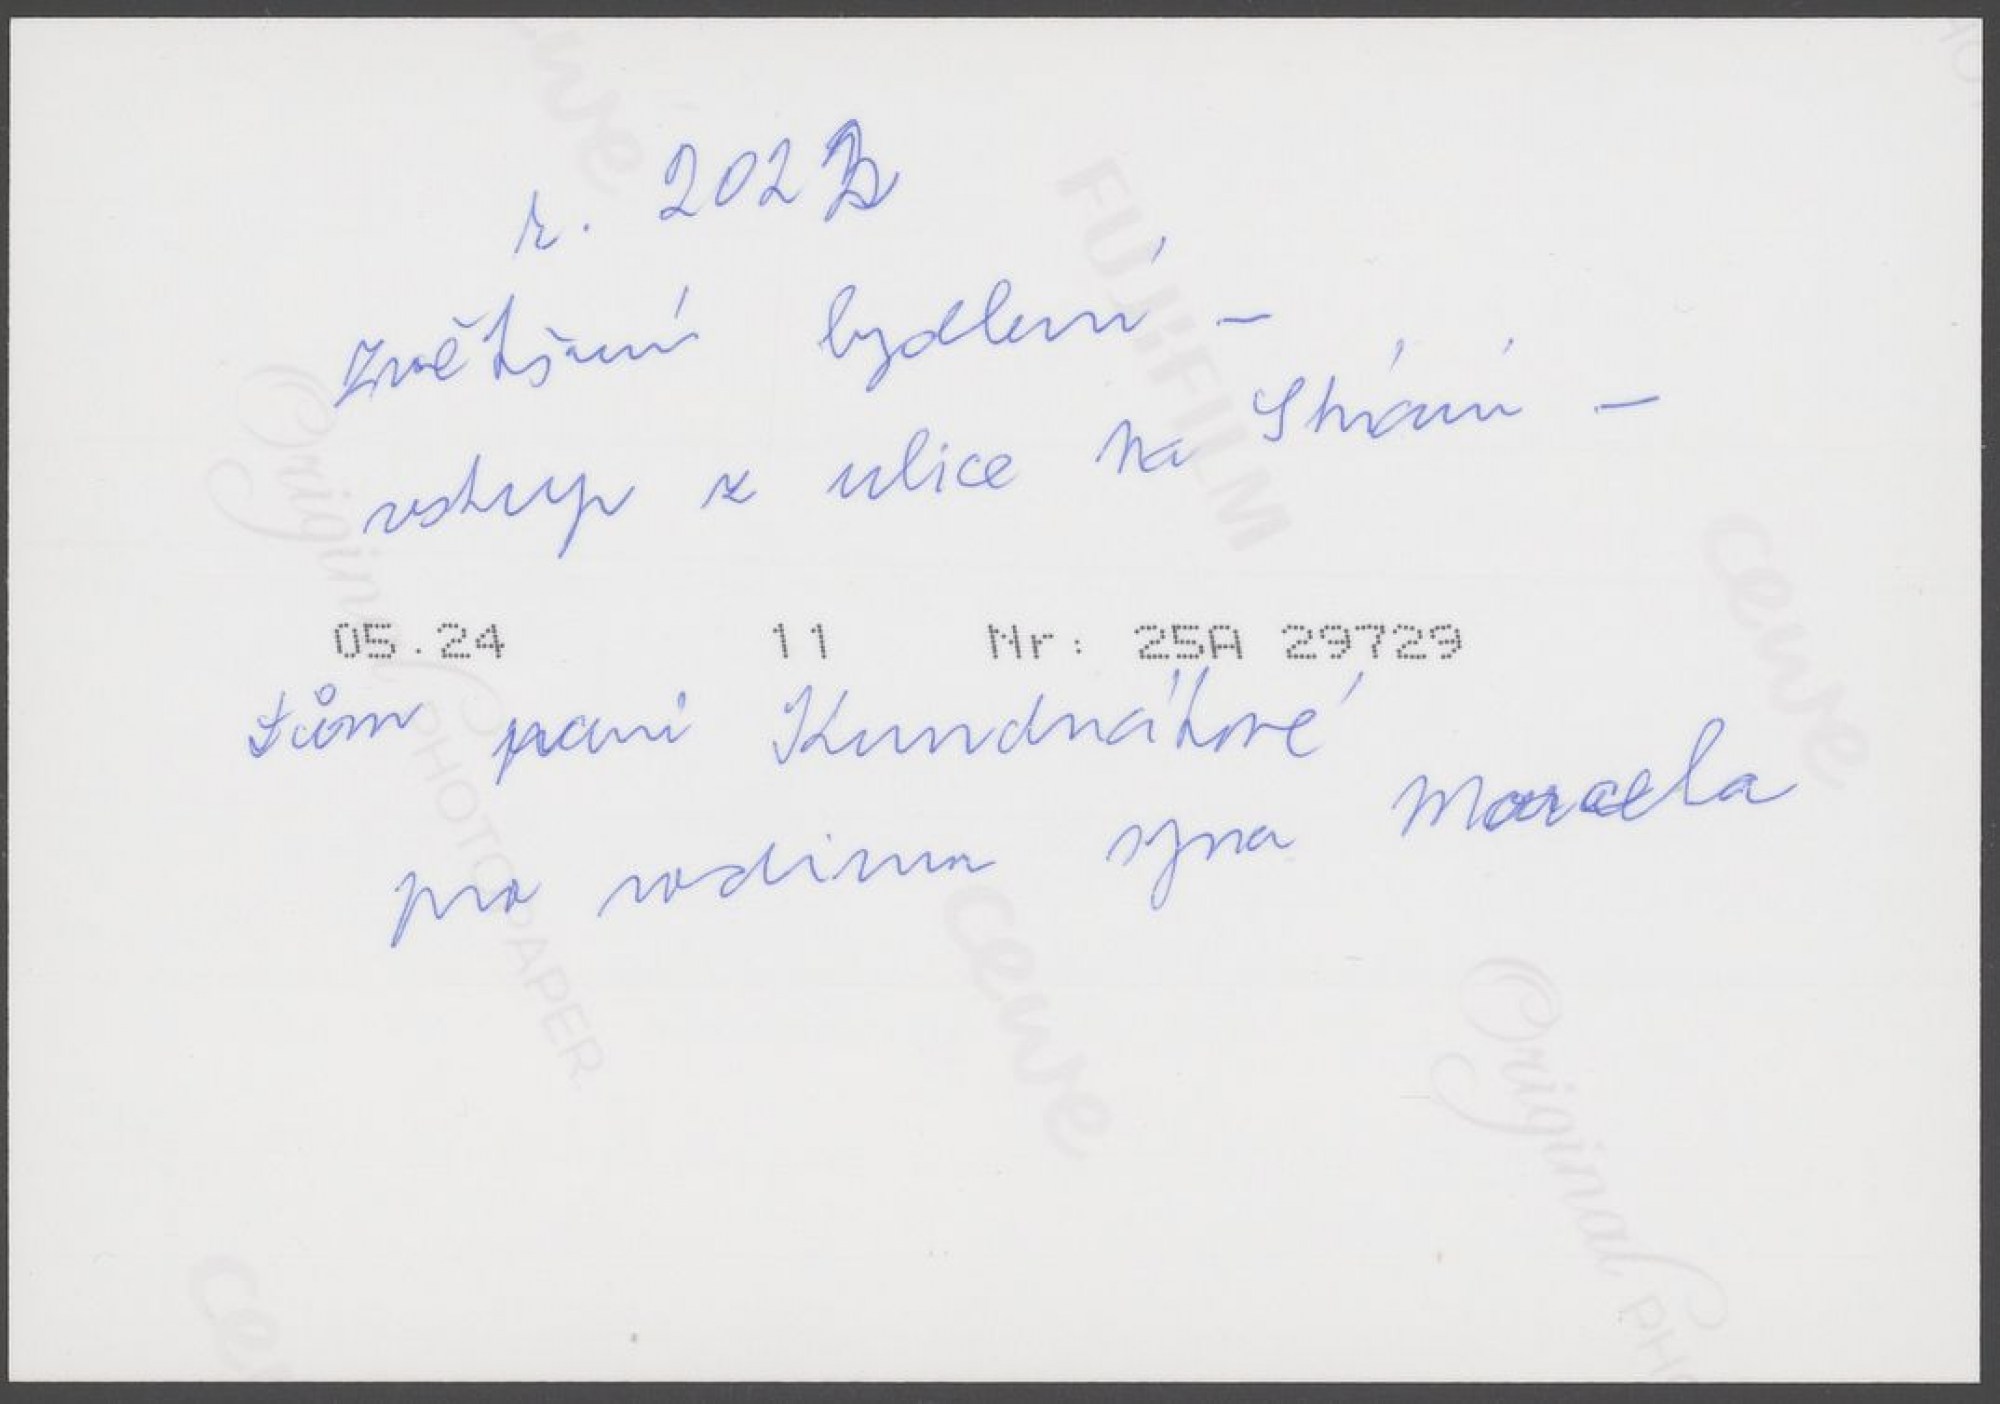 r. 2023
zvětšení bydlení –
vstup z ulice Na Stráni –
05.24 11 Nr: 25A 29729
dům paní Kundrátové
pro rodinu syna Marcela
cewe
FUJIFILM
Original PHOTO PAPER
cewe
cewe
Original PHO
ce